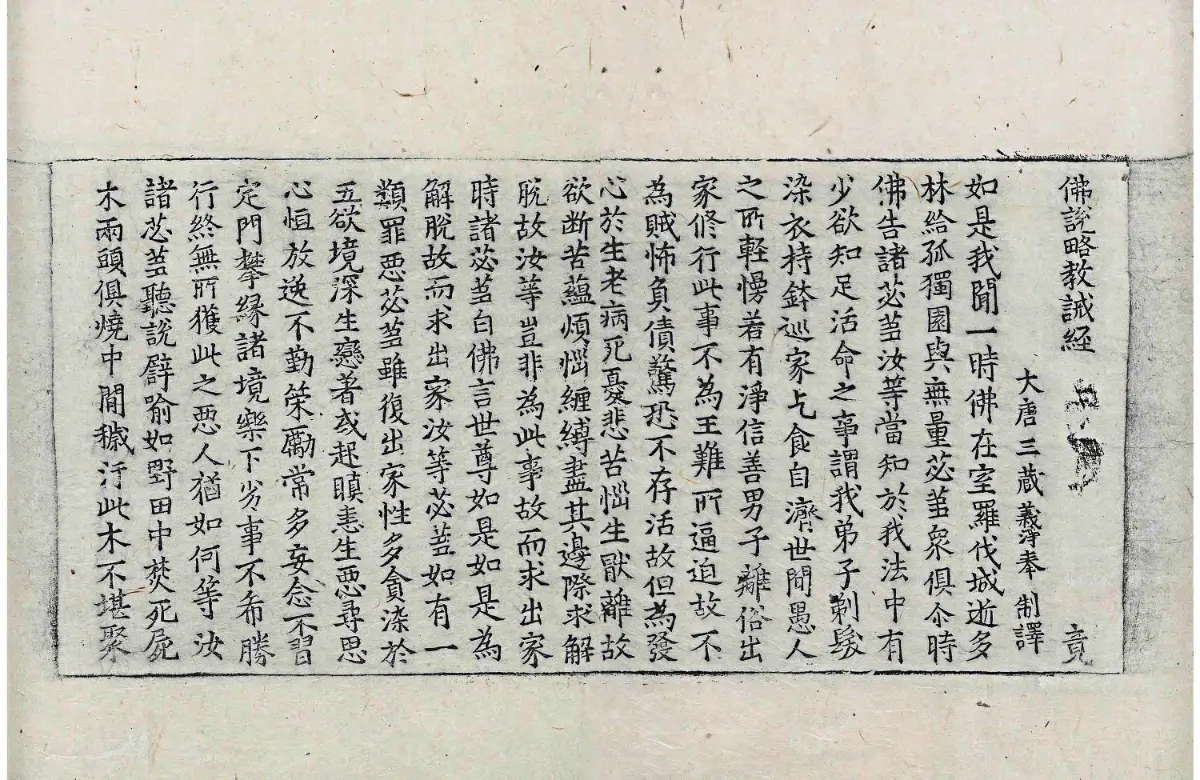 佛說略教誡経 竟
大唐三藏義淨奉 制譯
如是我聞一時佛在室羅伐城逝多
林給孤獨園與無量苾芻衆俱尒時
佛告諸苾芻汝等當知於我法中有
少欲知足活命之事謂我弟子剃髮
染衣持鉢巡家乞食自濟世間愚人
之所軽慢若有淨信善男子離俗出
家修行此事不為王難所逼迫故不
為賊怖負債驚恐不存活故但為發
心於生老病死憂悲苦惱生猒離故
欲断苦蘊煩惱纏縛盡其邊際求解
脫故汝等豈非為此事故而求出家
時諸苾芻白佛言世尊如是如是為
解脫故而求出家汝等苾芻如有一
類罪惡苾芻雖復出家性多貪染於
五欲境深生戀著或起瞋恚生惡尋思
心恒放逸不勤策勵常多妄念不習
定門攀縁諸境樂下劣事不希勝
行終無所獲此之惡人猶如何等汝
諸苾芻聽說譬喻如野田中焚死屍
木兩頭俱燒中間穢汙此木不堪聚